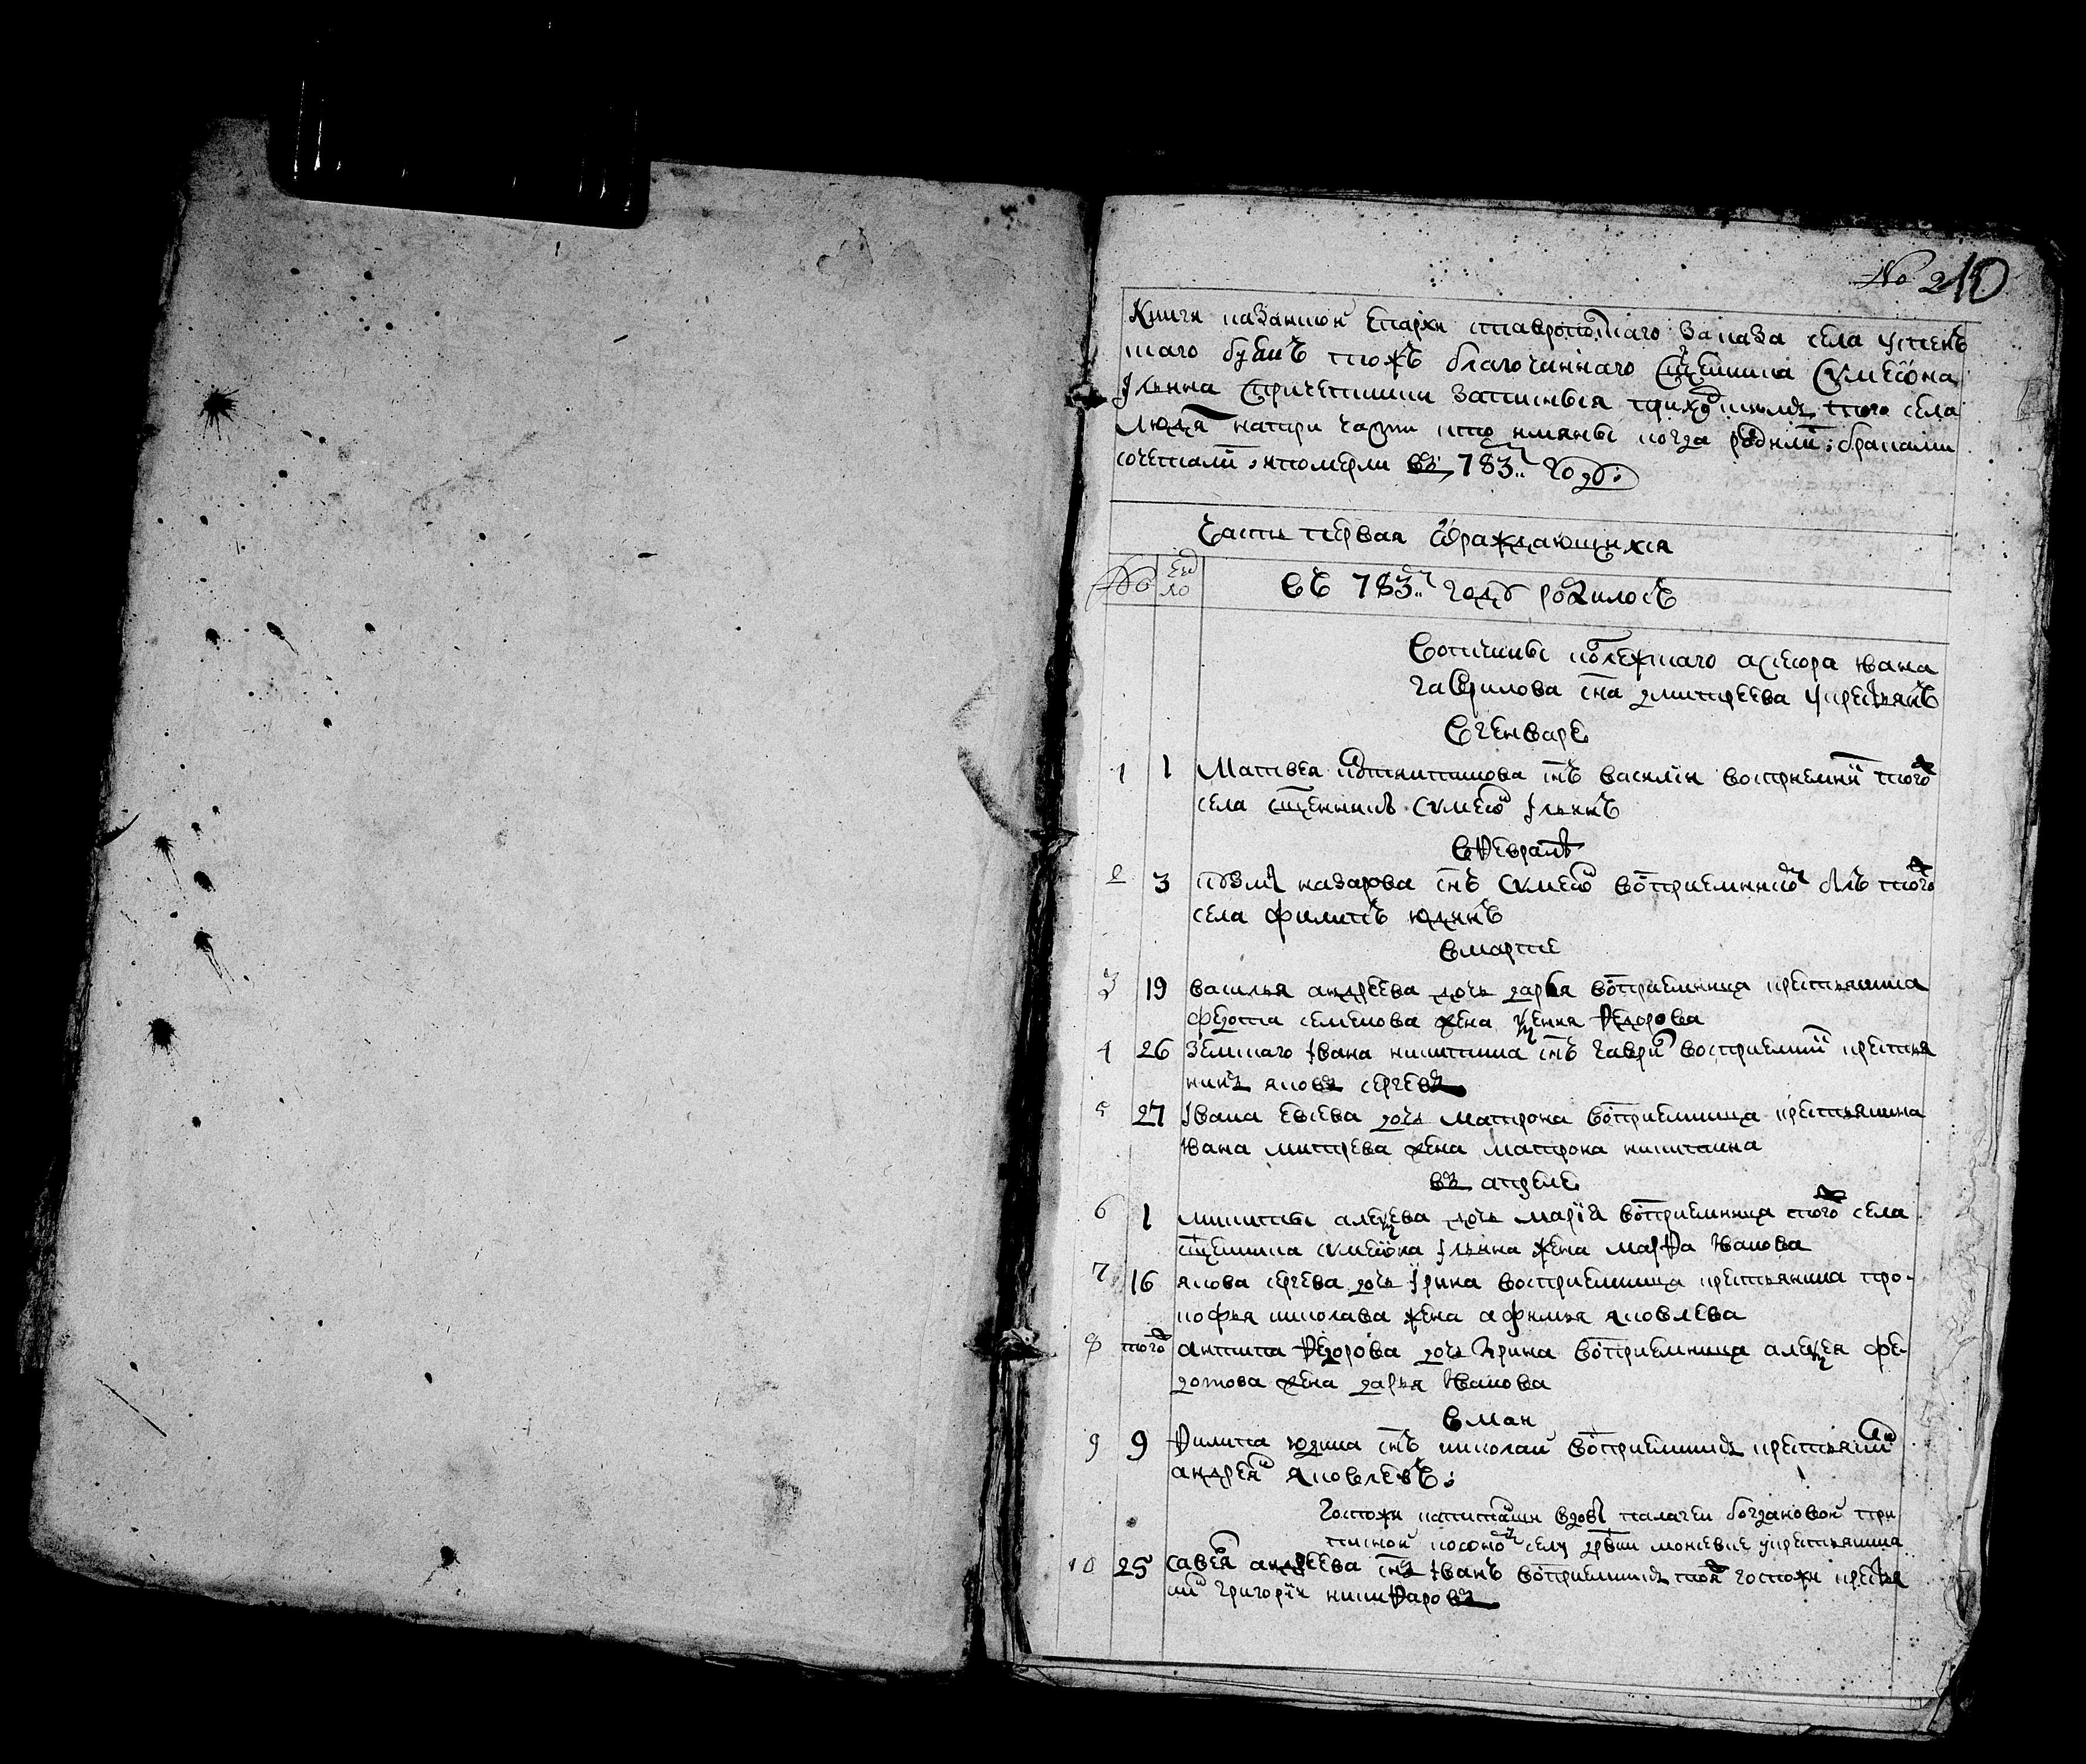 № 210
Книги казанкой епархи ставрополскаго заказа села успенъ
скаго буянъ тожъ благочиннаго священника сумеона
ильина спричетники записныя приходскимъ того села
людямъ натри части кто имяны когда родились: браками
сочетались, ипомерли въ 783м году:
Часть первая ѡраждающихся
№ число въ 783м году родилось
Вотчины колежскаго асесора ивана
гаврилова сна дмитреева укрестьянъ
Вгенваре
1 1 Матвея сынъ василии восприемникъ тогож
села священникъ сумеонъ ильинъ
Вфеврале
2 3 козмы назарова снъ сумеон воспприемникомъ былъ тогож
села филипъ юдинъ
вмарте
3 19 василья андреева дочь дарья восприемница крестьянина
федота семенова жена ксенья федорова
4 26 земскаго ивана никитина снъ гаврил восприемник крестья
нинъ яковъ сергевъ
5 27 ивана евсева дочь матрона восприемница крестьянина
ивана митрева жена матрона никитина
въ апреле
6 1 микиты алексева дочь мария восприемница тогож села
священника сумеона ильина жена марфа иванова
7 16 якова сергева дочь ирина восприемница крестьянина про-
кофья николава жена афимья яковлева
8 тогож антипа федорова дочь ирина восприемница алексея фе-
дотова жена дарья иванова
вмаи
9 9 филипа юдина снъ николаи восприемникъ крестьянин
андреян яковлевъ:
Госпожи вдовы палагеи богдановой при
писной кооному селу дрвни моисевке укрестьянина
10 25 савелья андреева снъ иванъ восприемникъ тояж госпожи крестья
нин григорьи никифоровъ